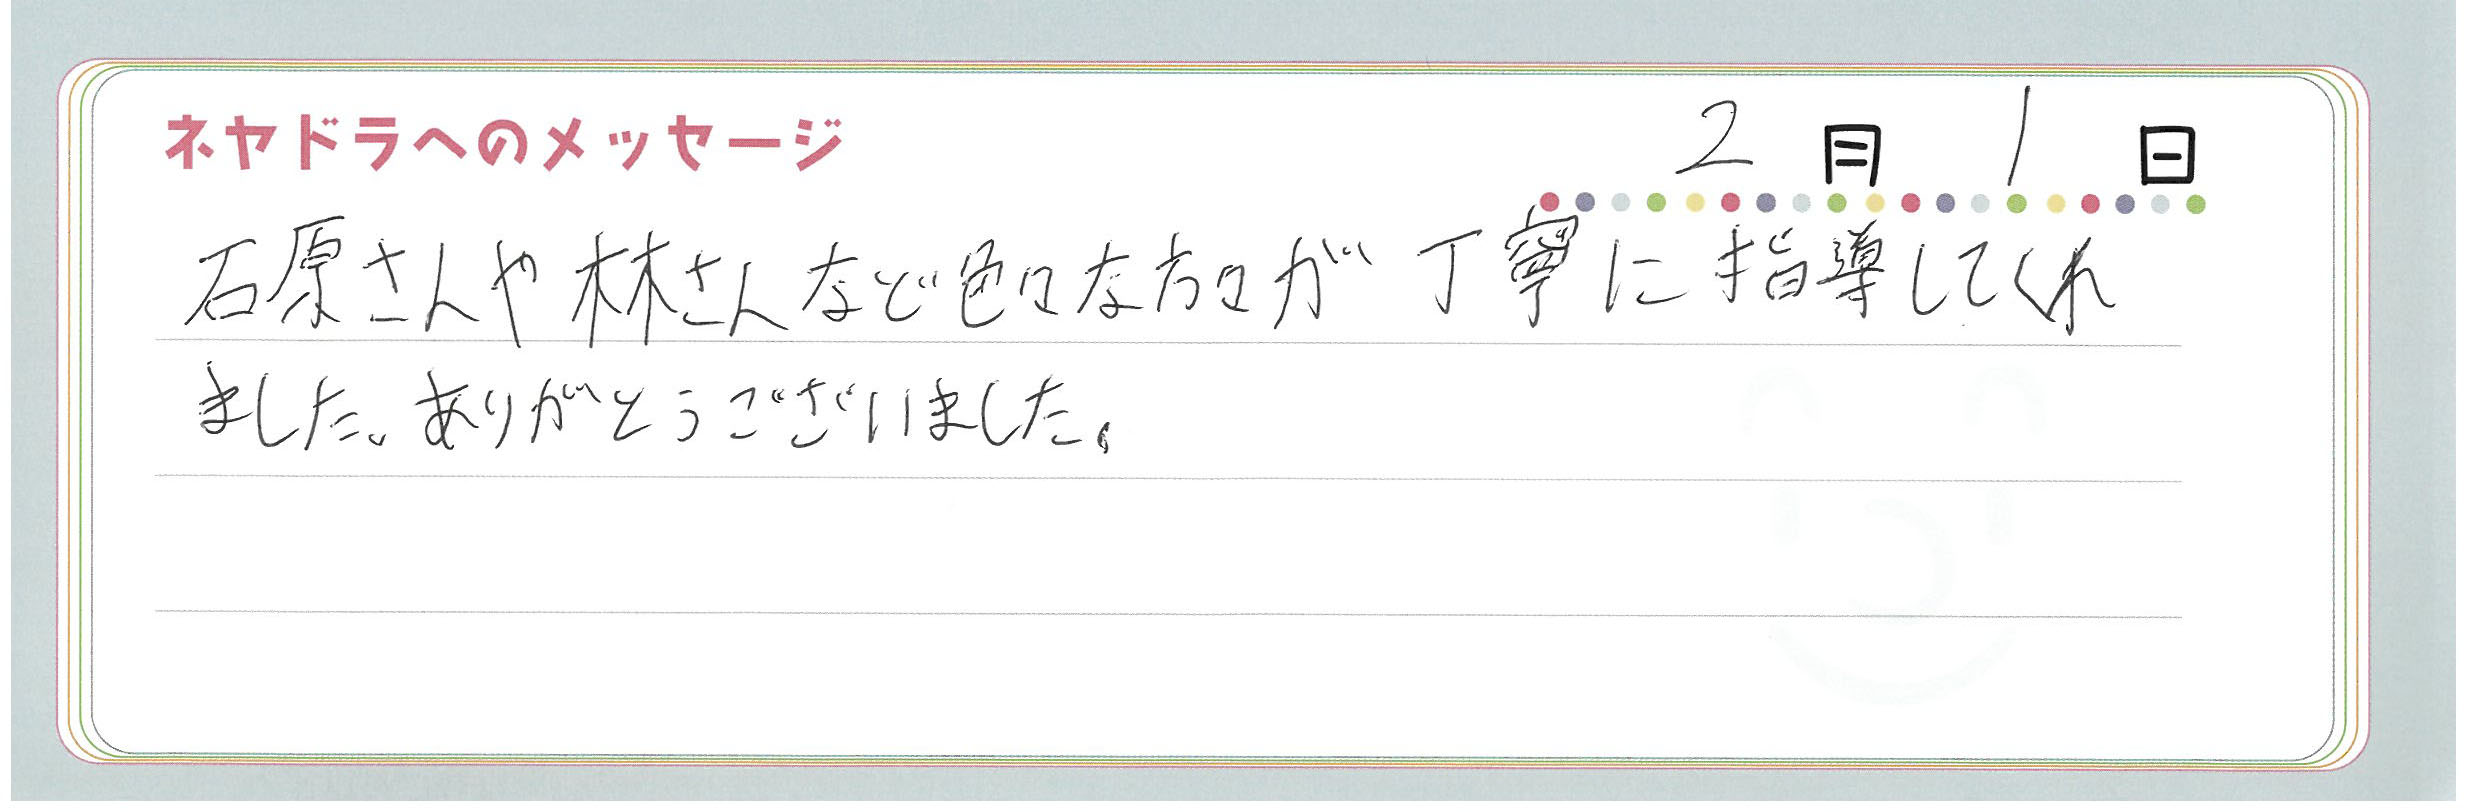 ネヤドラへのメッセージ
2月1日
石原さんや林さんなど色々な方々が丁寧に指導してくれ
ました。ありがとうございました。